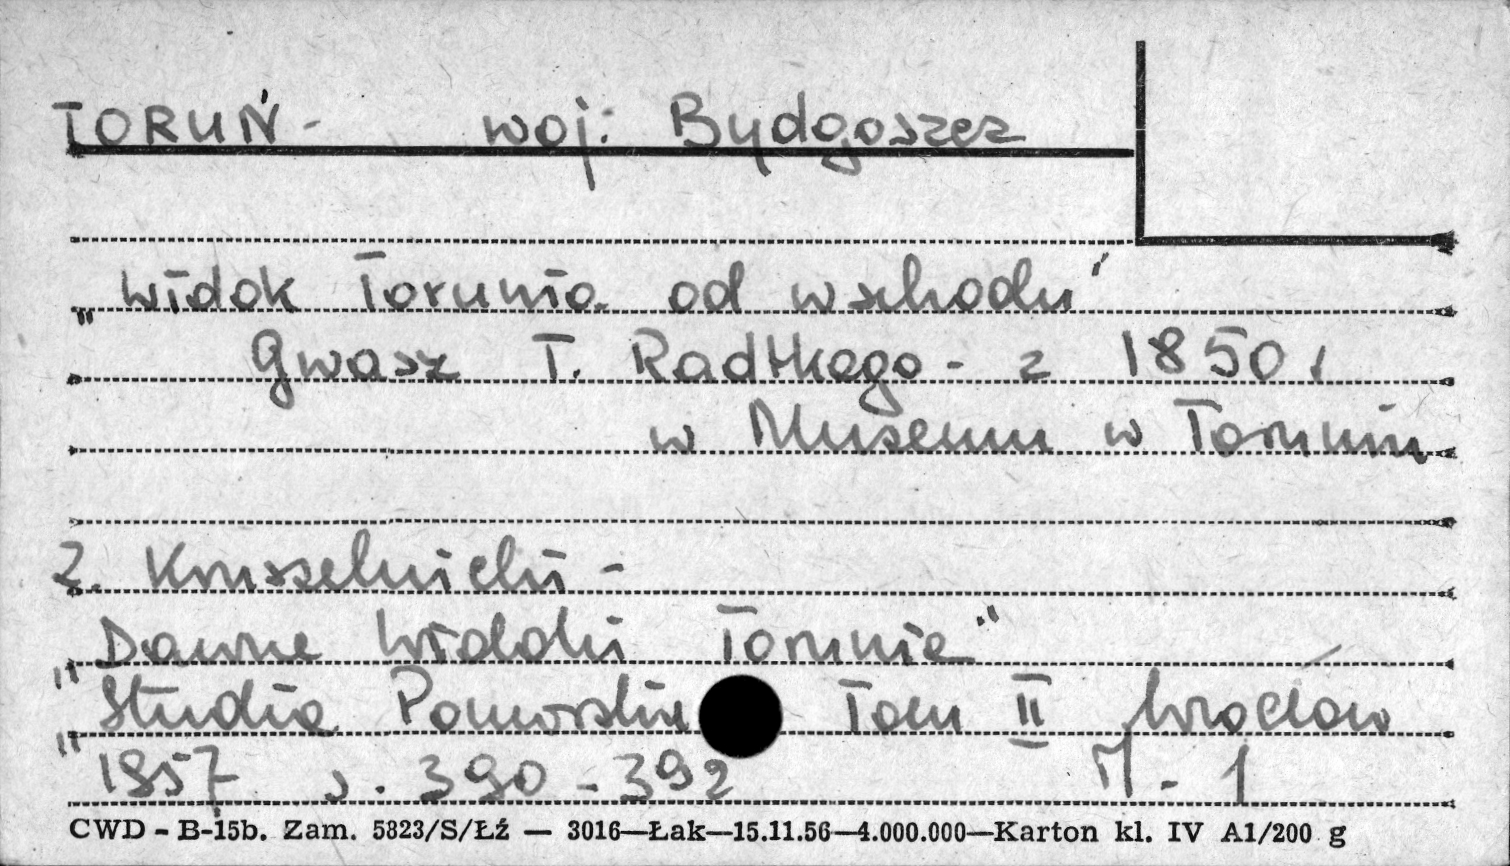 TORUŃ - woj. Bydgoszcz
"Widok Torunia od wschodu"
Gwasz T. Radtkego - z 1850 r
w Muzeum w Toruniu
Z. Kruszelnicki -
"Dawne widoki Torunia"
"Studia Pomorskie Tom II Wrocław
1957 s. 390 - 392 M - 1
CWD - B-15b. Zam. 5823/S/Łź — 3016—Łak—15.11.56—4.000.000—Karton kl. IV A1/200 g